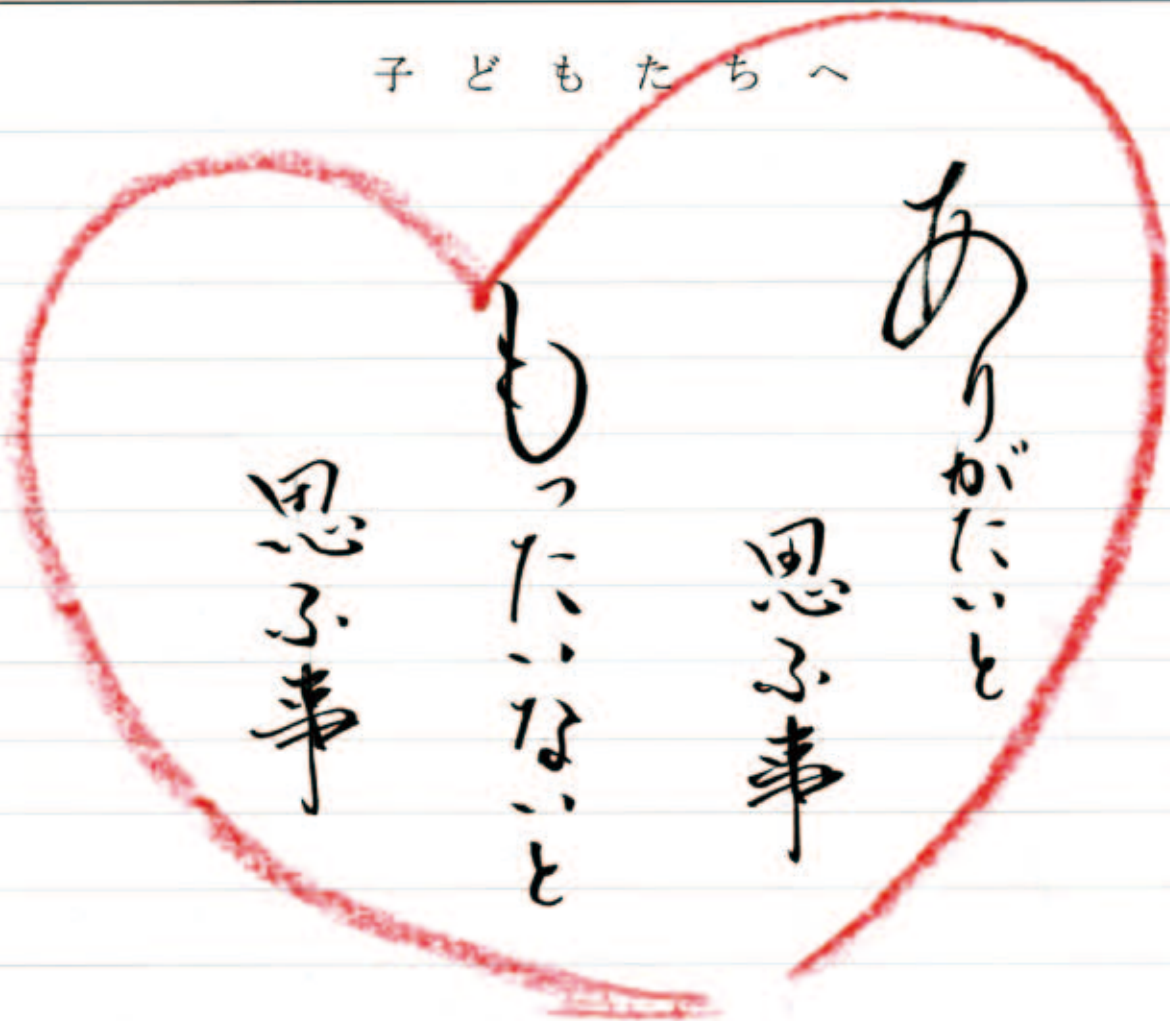 子どもたちへ
ありがたいと
思ふ事
もったいないと
思ふ事